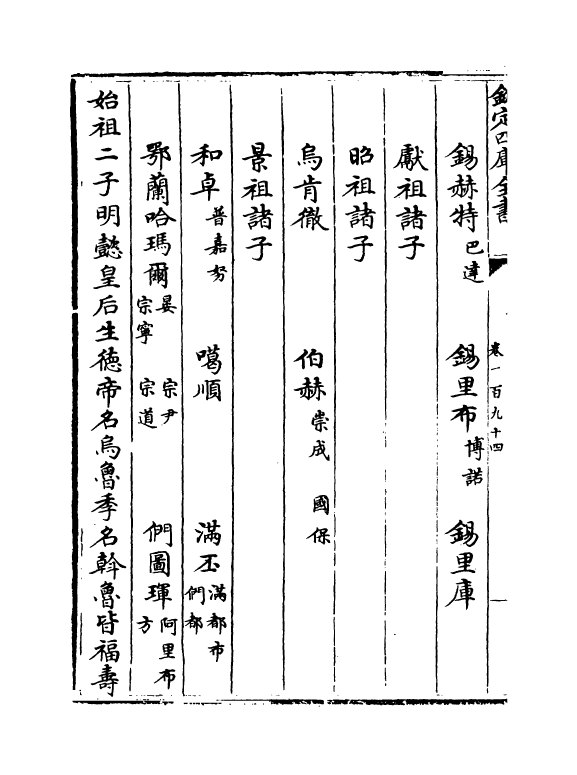 欽定四庫全書
卷一百九十四
錫赫特 巴達 錫里布 博諾 錫里庫
獻祖諸子
昭祖諸子
烏肯徹 伯赫 崇成 國保
景祖諸子
和卓 普嘉努 噶順 滿丕 滿都布 們都
鄂蘭哈瑪爾 晏 宗寧 宗尹 宗道 們圖琿 阿里布 方
始祖二子明懿皇后生德帝名烏魯季名斡魯皆福壽